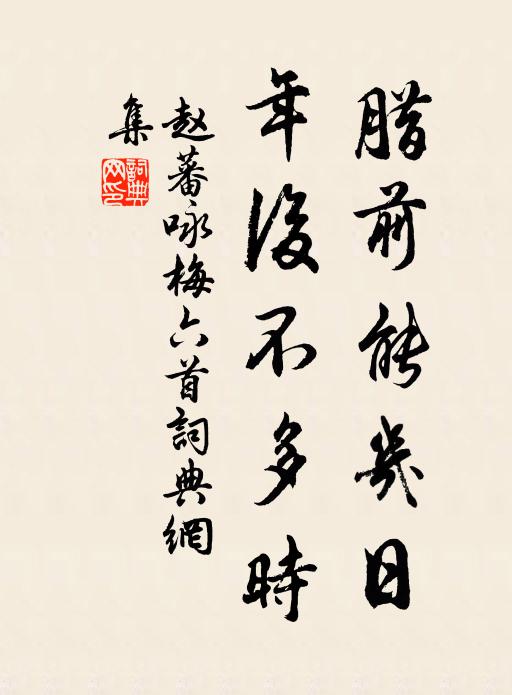 腊前能幾日
年後不多時
赵蕃咏梅六首詞典網
集
詞典
网印